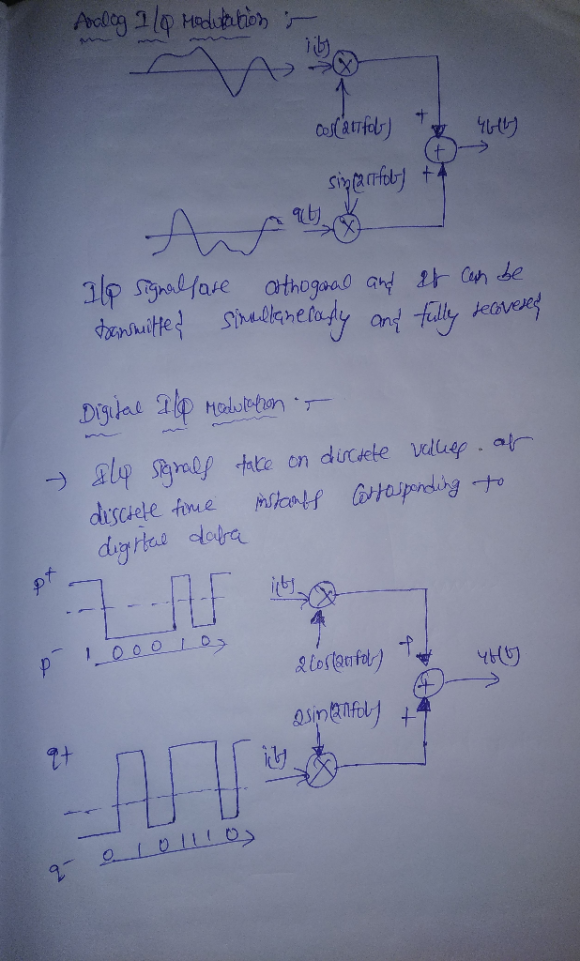 Analog I/Q Modulation :-
i(t)
cos(2πfot)
+
+
yt(t)
+
sin(2πfot)
q(t)
I/Q signals are orthogonal and It can be
transmitted simultaneously and fully recovered
Digital I/Q Modulation :-
→ I/Q signals take on discrete values. at
discrete time instants corrosponding to
digital data
p+
p- 1 0 0 0 1 0
i(t)
2cos(2πfot)
+
+
yt(t)
2sin(2πfot)
+
q+
i(t)
q- 0 1 0 1 1 1 0